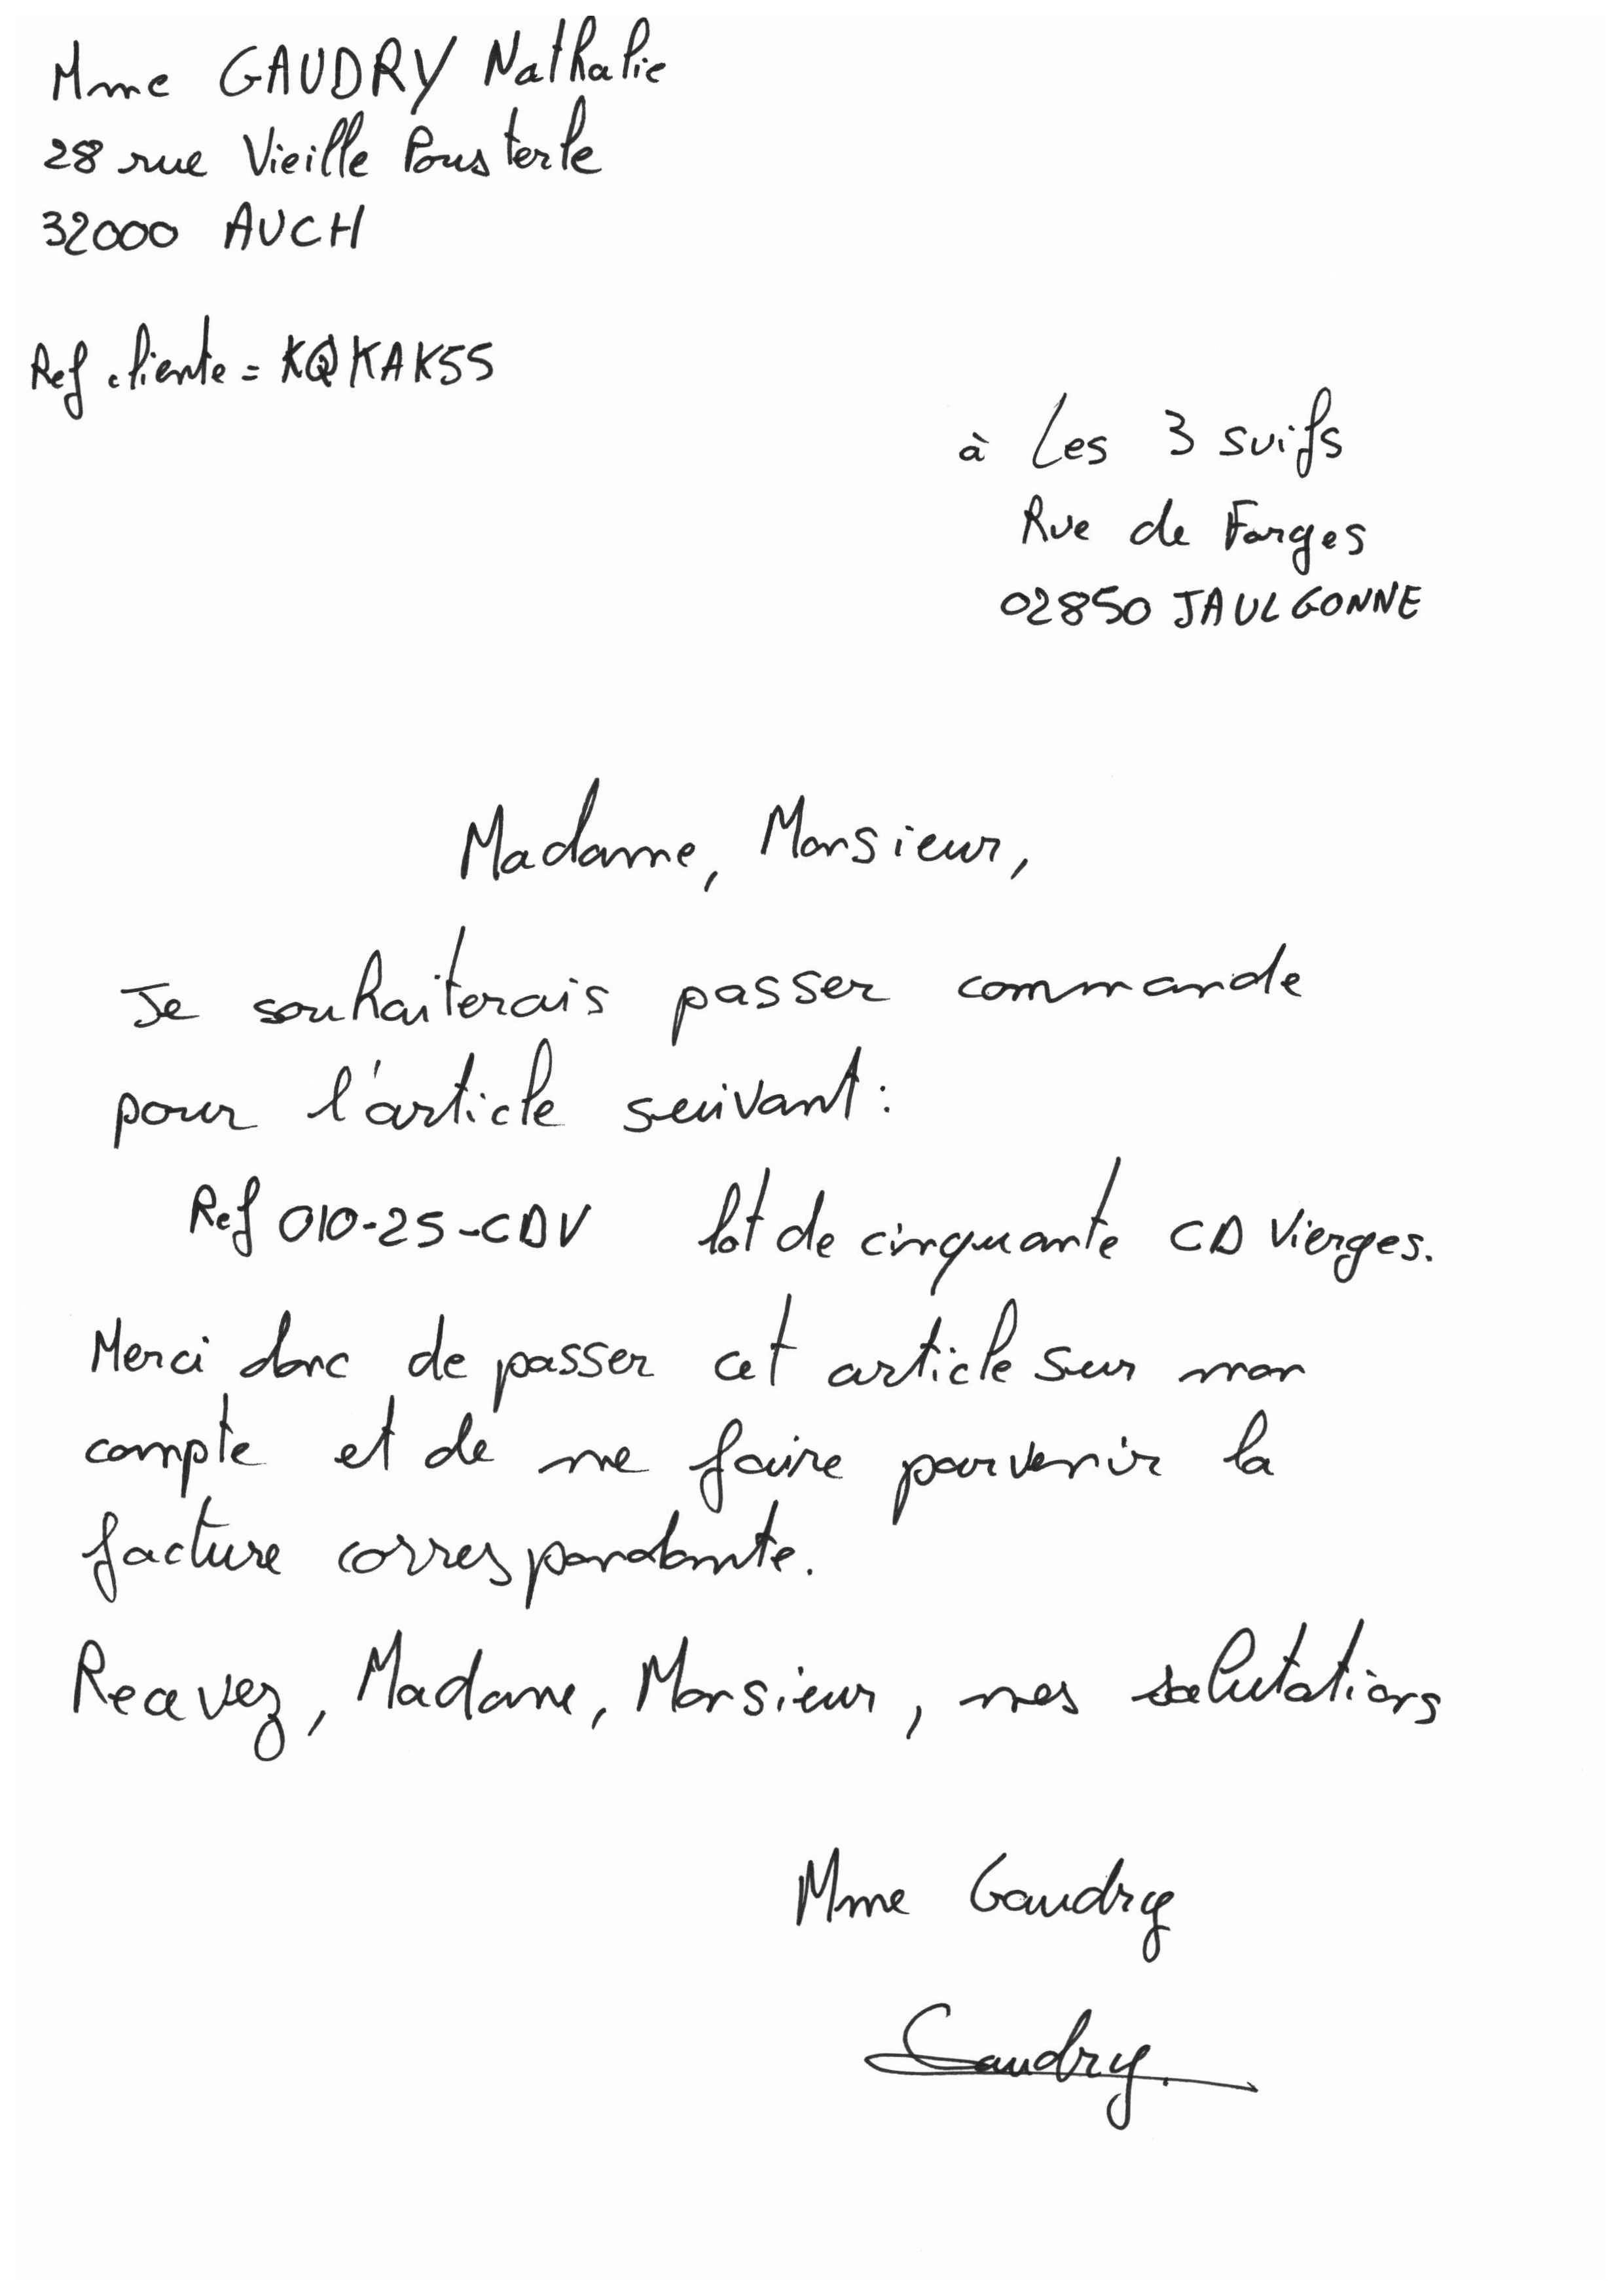 Mme GAUDRY Nathalie
28 rue Vieille Pousterle
32000 AUCH
Ref cliente = KQKAK55
à Les 3 suifs
Rue de Farges
02850 JAULGONNE
Madame, Monsieur,
Je souhaiterais passer commande
pour l'article suivant :
Ref 010-25-CDV lot de cinquante CD Vierges.
Merci donc de passer cet article sur mon
compte et de me faire parvenir la
facture correspondante.
Recevez, Madame, Monsieur, mes salutations
Mme Gaudry
Gaudry